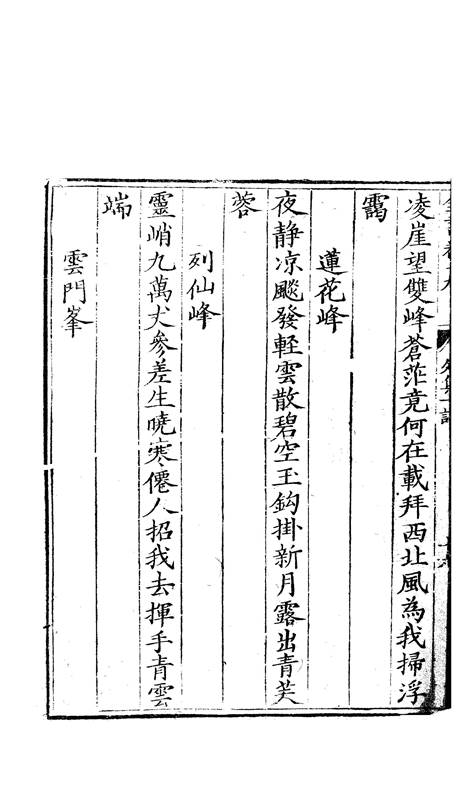 凌崖望雙峰蒼茫竟何在載拜西北風為我掃浮
靄
蓮花峰
夜静凉颷發輕雲散碧空玉鈎掛新月露出青芙
蓉
列仙峰
靈峭九萬丈參差生曉寒僊人招我去揮手青雲
端
雲門峯